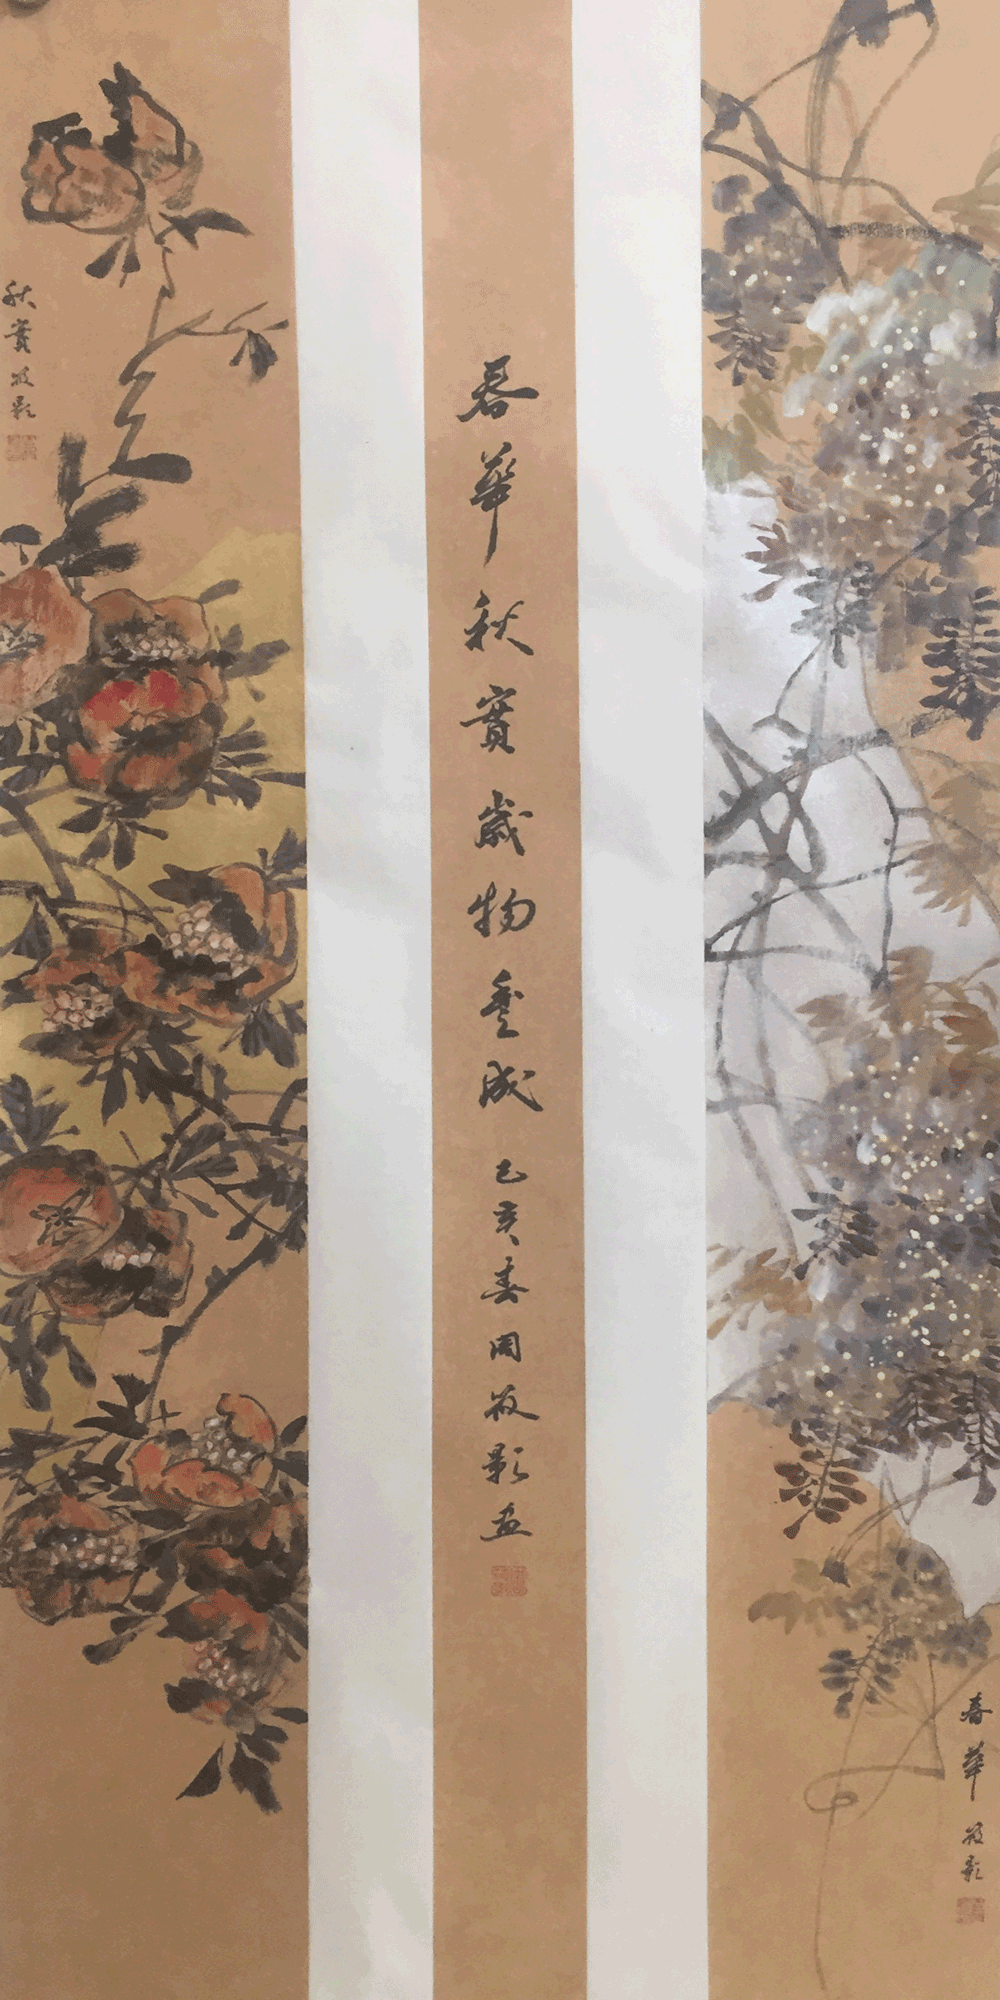 春華
影
春華秋實歲物豐成
己亥春周影画
秋實
影